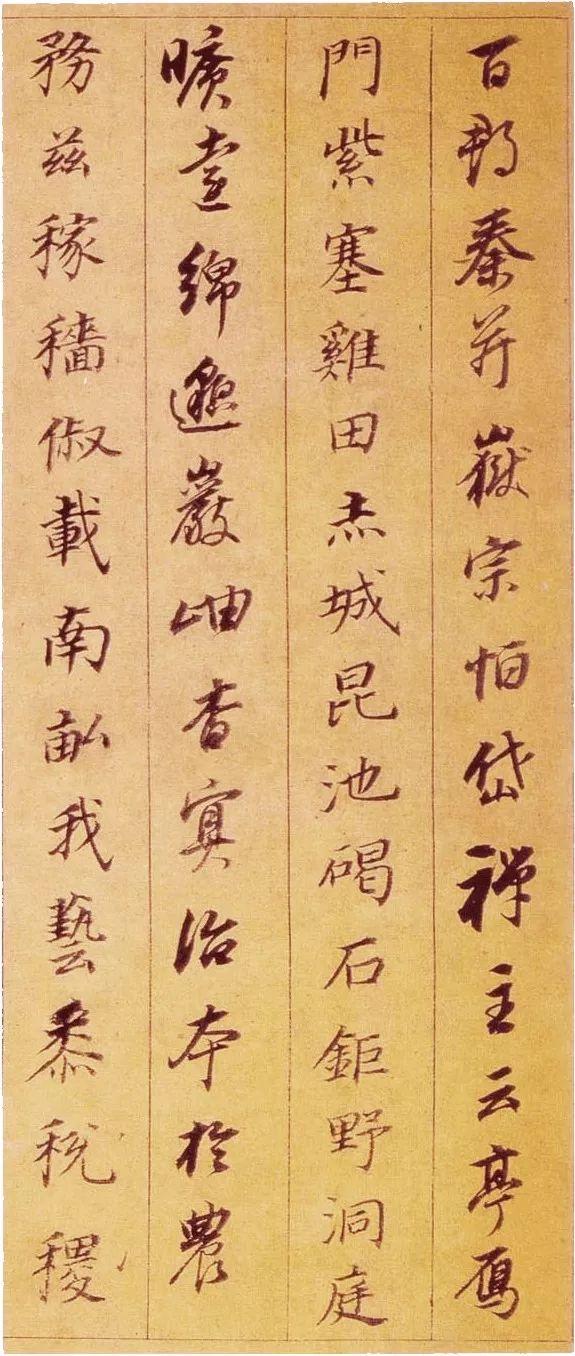 百郡秦并嶽宗恒岱禪主云亭鴈
門紫塞雞田赤城昆池碣石鉅野洞庭
曠遠綿邈巖岫杳冥治本於農
務茲稼穡俶載南畝我藝黍稅稷